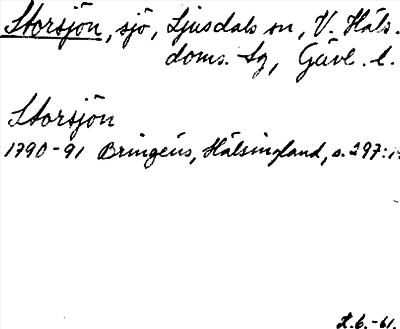 Storsjön, sjö, Ljusdals sn, V. Häls.
doms. tg, Gävl. l.
Storsjön
1790-91 Bringéus, Hälsingland, s. 297:
-61.